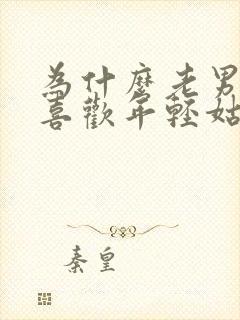 為什麼老男
喜歡年輕姑
秦皇